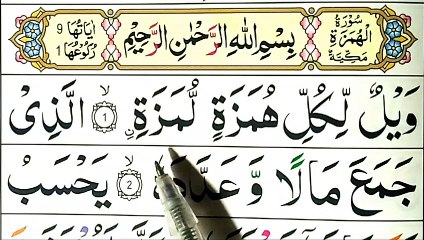 سُوْرَةُ الْهُمَزَةِ مَكِّيَّةٌ
بِسْمِ اللّٰهِ الرَّحْمٰنِ الرَّحِيْمِ
اٰيَاتُهَا 9 رُكُوْعُهَا 1
وَيْلٌ لِّكُلِّ هُمَزَةٍ لُّمَزَةِ ۙ ﴿1﴾ الَّذِىْ
جَمَعَ مَالًا وَّعَدَّدَهٗ ۙ ﴿2﴾ يَحْسَبُ